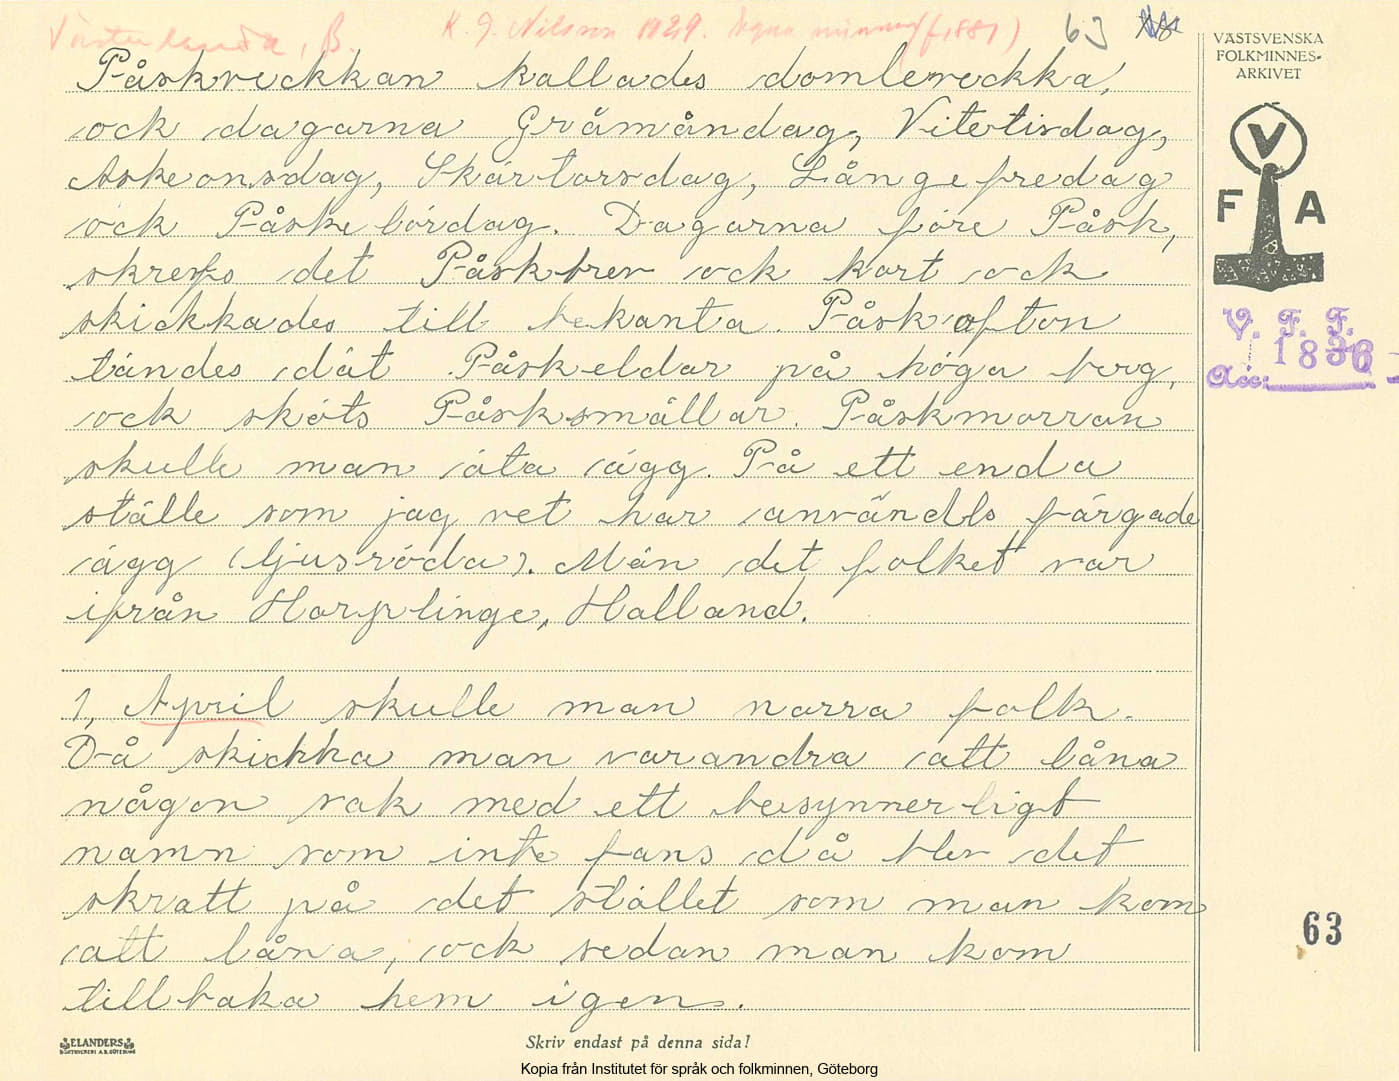 Västerlanda, B. K. J. Nilsson 1929. Egna minnen (f. 1881) 63
VÄSTSVENSKA
FOLKMINNES-
ARKIVET
V
F A
V. F. F.
Acc: 1836
Påskveckkan kallades domleveckka,
ock dagarna Gråmåndag, Vitetisdag,
Askeonsdag, Skärtorsdag, Långefredag
ock Påskelördag. Dagarna före Påsk,
skrefs det Påskbrev ock kort ock
skickkades till bekanta. Påskafton
tändes dät Påskeldar på höga berg,
ock sköts Påsksmällar. Påskmorran
skulle man äta ägg. På ett enda
ställe som jag vet har användts färgade
ägg (ljusröda). Män det folket var
ifrån Harplinge, Halland.
1, April skulle man narra folk.
Då skickka man varandra att låna
någon sak med ett besynnerligt
namn som inte fans då blev det
skratt på det stället som man kom
att låna, ock sedan man kom
tillbaka hem igen.
63
ELANDERS
BOKTRYCKERI A.B. GÖTEBORG
Skriv endast på denna sida!
Kopia från Institutet för språk och folkminnen, Göteborg